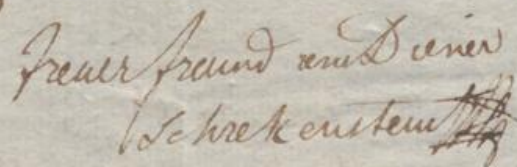 treuer freund und Diener
Schrekenstein